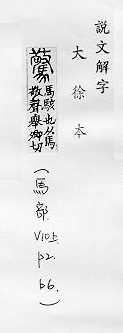 説文解字
大徐本
驚 馬駭也从馬
敬聲舉卿切
(馬部 V10上 p2. b6.)